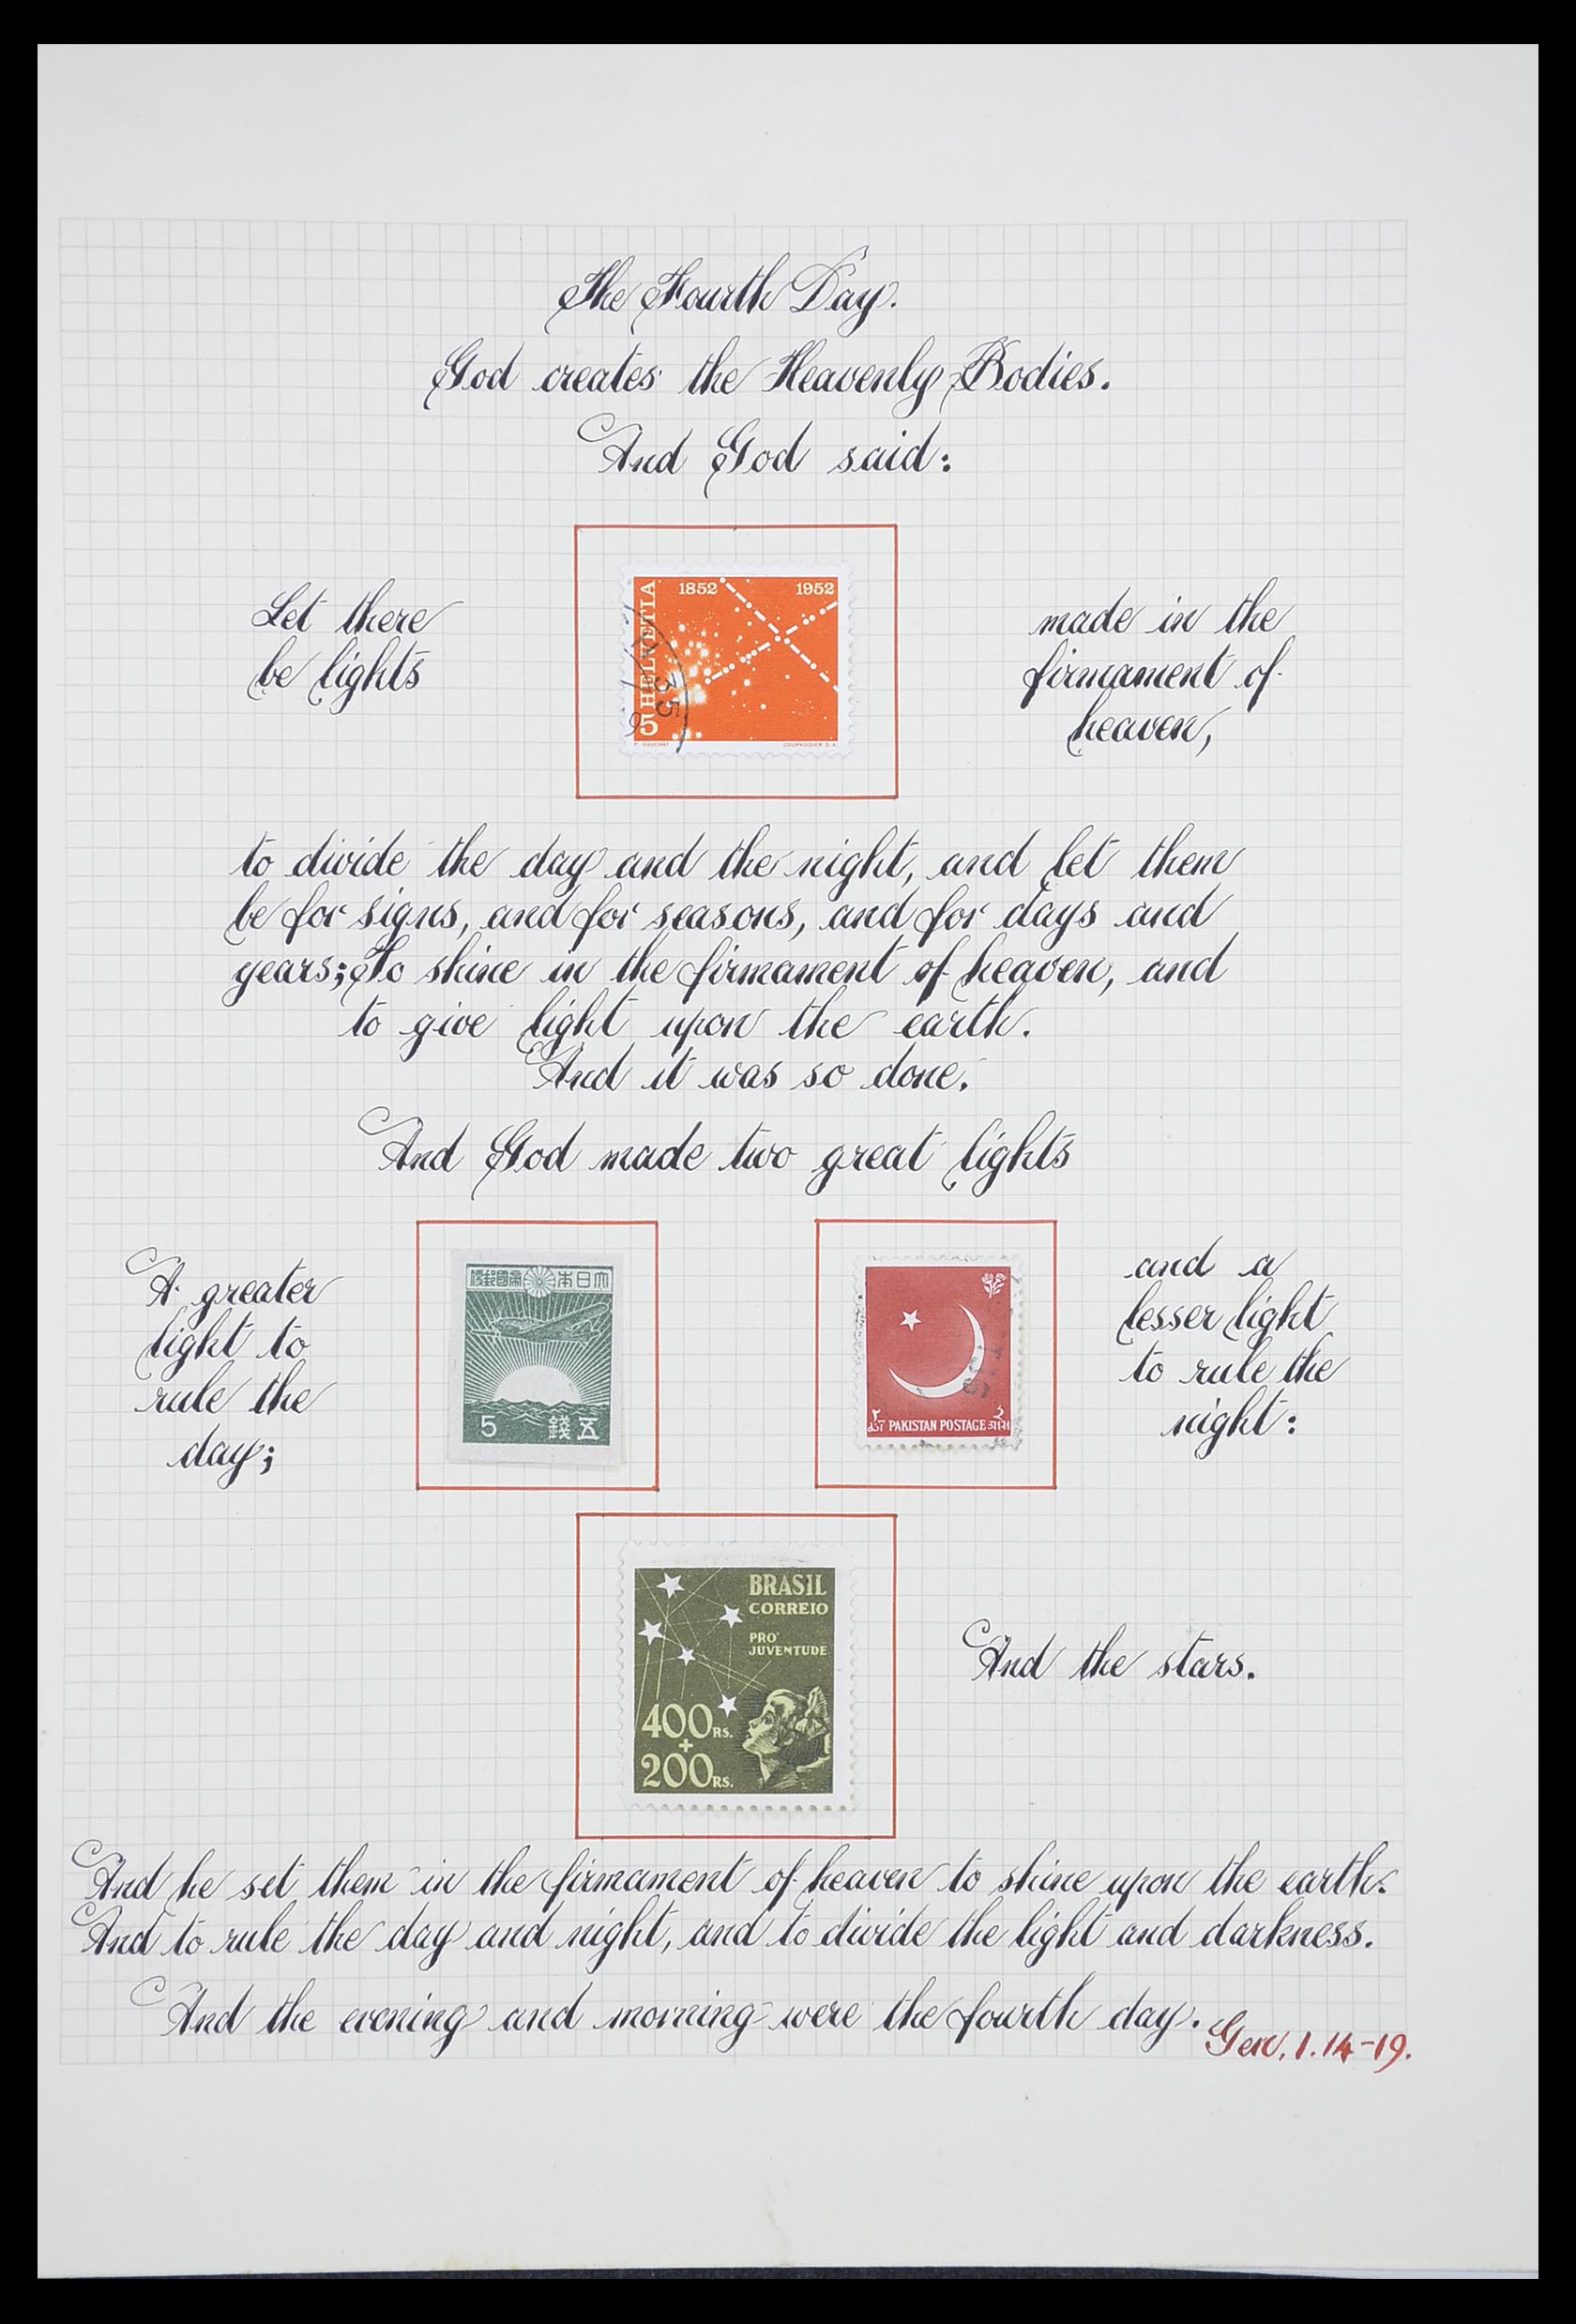 The Fourth Day.
God creates the Heavenly Bodies.
And God said:
Let there
be lights
1852 1952
HELVETIA
5
35
P. GAUCHAT COURVOISIER S.A.
made in the
firmament of
heaven,
to divide the day and the night, and let them
be for signs, and for seasons, and for days and
years; To shine in the firmament of heaven, and
to give light upon the earth.
And it was so done.
And God made two great lights
A greater
light to
rule the
day;
便郵國帝本日大
5 錢五
PAKISTAN POSTAGE
and a
lesser light
to rule the
night:
BRASIL
CORREIO
PRO
JUVENTUDE
400 RS.
+
200 RS.
And the stars.
And he set them in the firmament of heaven to shine upon the earth.
And to rule the day and night, and to divide the light and darkness.
And the evening and morning were the fourth day.
Gen. 1. 14-19.